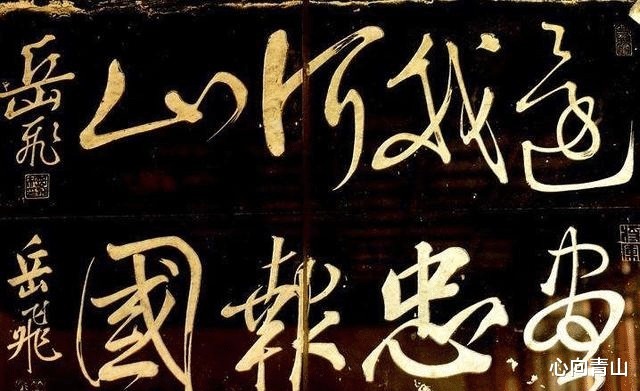 還我河山
岳飛
盡忠報國
岳飛
心向青山